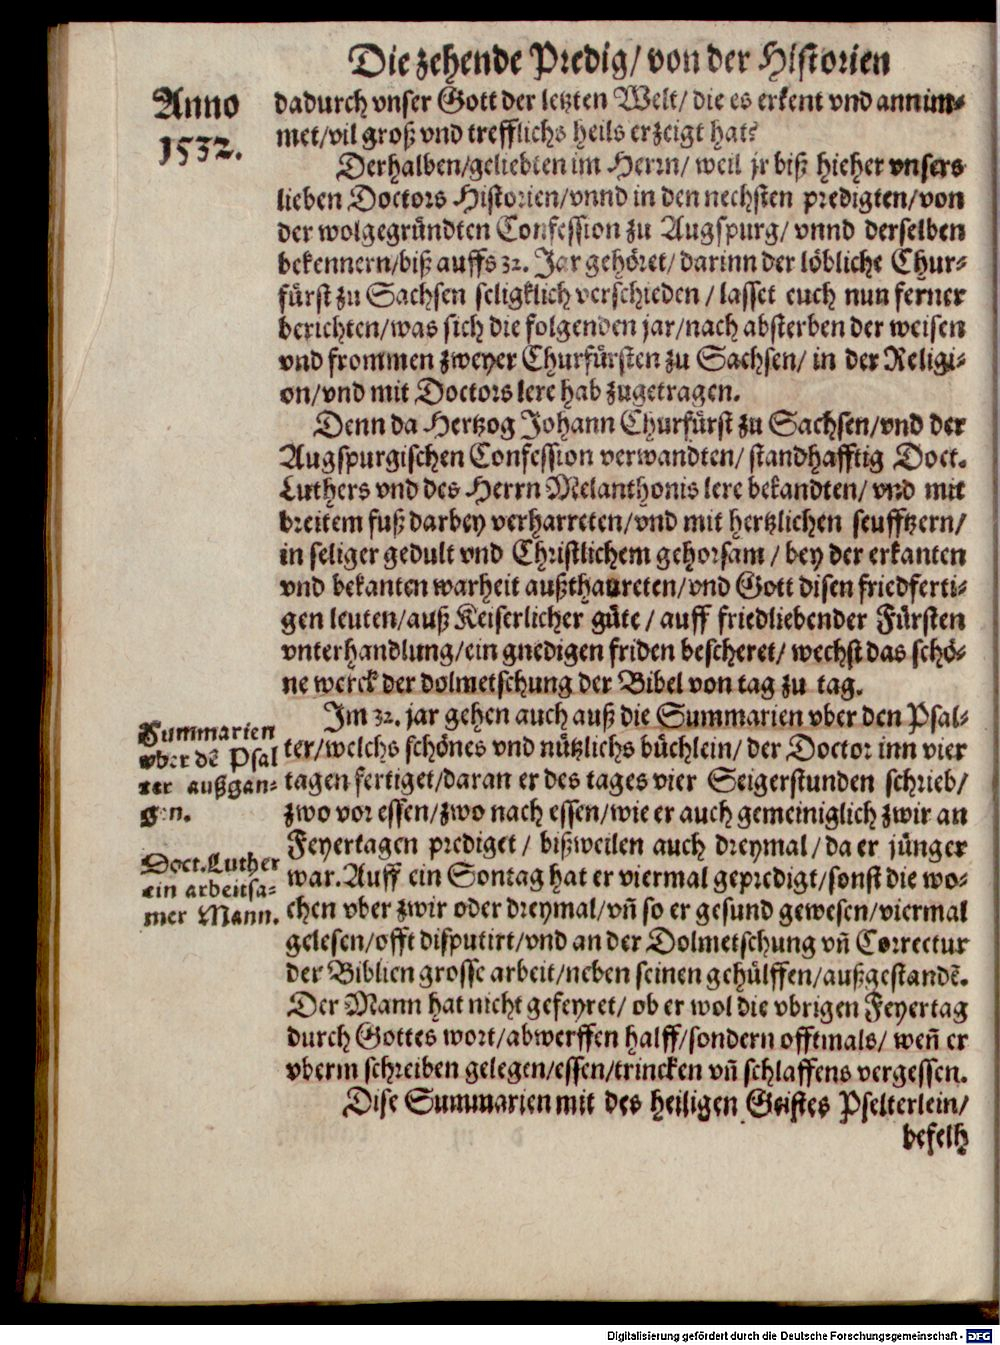 Die zehende Predig/ von der Historien
Anno
1532.
dadurch vnser Gott der letzten Welt/ die es erkent vnd annim-
met/vil groß vnd trefflichs heils erzeigt hat?
Derhalben/geliebten im Herrn/ weil jr biß hieher vnsers
lieben Doctors Historien/vnnd in den nechsten predigten/von
der wolgegründten Confession zu Augspurg/ vnnd derselben
bekennern/biß auffs 32. Jar gehöret/ darinn der löbliche Chur-
fürst zu Sachsen seligklich verschieden / lasset euch nun ferner
berichten/was sich die folgenden jar/nach absterben der weisen
vnd frommen zweyer Churfürsten zu Sachsen/ in der Religi-
on/vnd mit Doctors lere hab zugetragen.
Denn da Hertzog Johann Churfürst zu Sachsen/vnd der
Augspurgischen Confession verwandten/ standhafftig Doct.
Luthers vnd des Herrn Melanthonis lere bekandten/ vnd mit
breitem fuß darbey verharreten/vnd mit hertzlichen seufftzern/
in seliger gedult vnd Christlichem gehorsam / bey der erkanten
vnd bekanten warheit außthaureten/vnd Gott disen friedferti-
gen leuten/auß Keiserlicher güte / auff friedliebender Fürsten
vnterhandlung/ein gnedigen friden bescheret/ wechst das schö-
ne werck der dolmetschung der Bibel von tag zu tag.
Im 32. jar gehen auch auß die Summarien vber den Psal-
ter/welchs schönes vnd nützlichs büchlein/ der Doctor inn vier
tagen fertiget/daran er des tages vier Seigerstunden schrieb/
zwo vor essen/zwo nach essen/wie er auch gemeiniglich zwir an
Feyertagen prediget / bißweilen auch dreymal/ da er jünger
war. Auff ein Sontag hat er viermal gepredigt/sonst die wo-
chen vber zwir oder dreymal/vn̄ so er gesund gewesen/viermal
gelesen/offt disputirt/vnd an der Dolmetschung vn̄ Correctur
der Biblien grosse arbeit/neben seinen gehülffen/außgestandē.
Der Mann hat nicht gefeyret/ ob er wol die vbrigen Feyertag
durch Gottes wort/abwerffen halff/sondern offtmals/ wen̄ er
vberm schreiben gelegen/essen/trincken vn̄ schlaffens vergessen.
Dise Summarien mit des heiligen Geistes Pselterlein/
befelh
Summarien
vber dē Psal
ter außgan-
gen.
Doct. Luther
ein arbeitsa-
mer Mann.
Digitalisierung gefördert durch die Deutsche Forschungsgemeinschaft - DFG